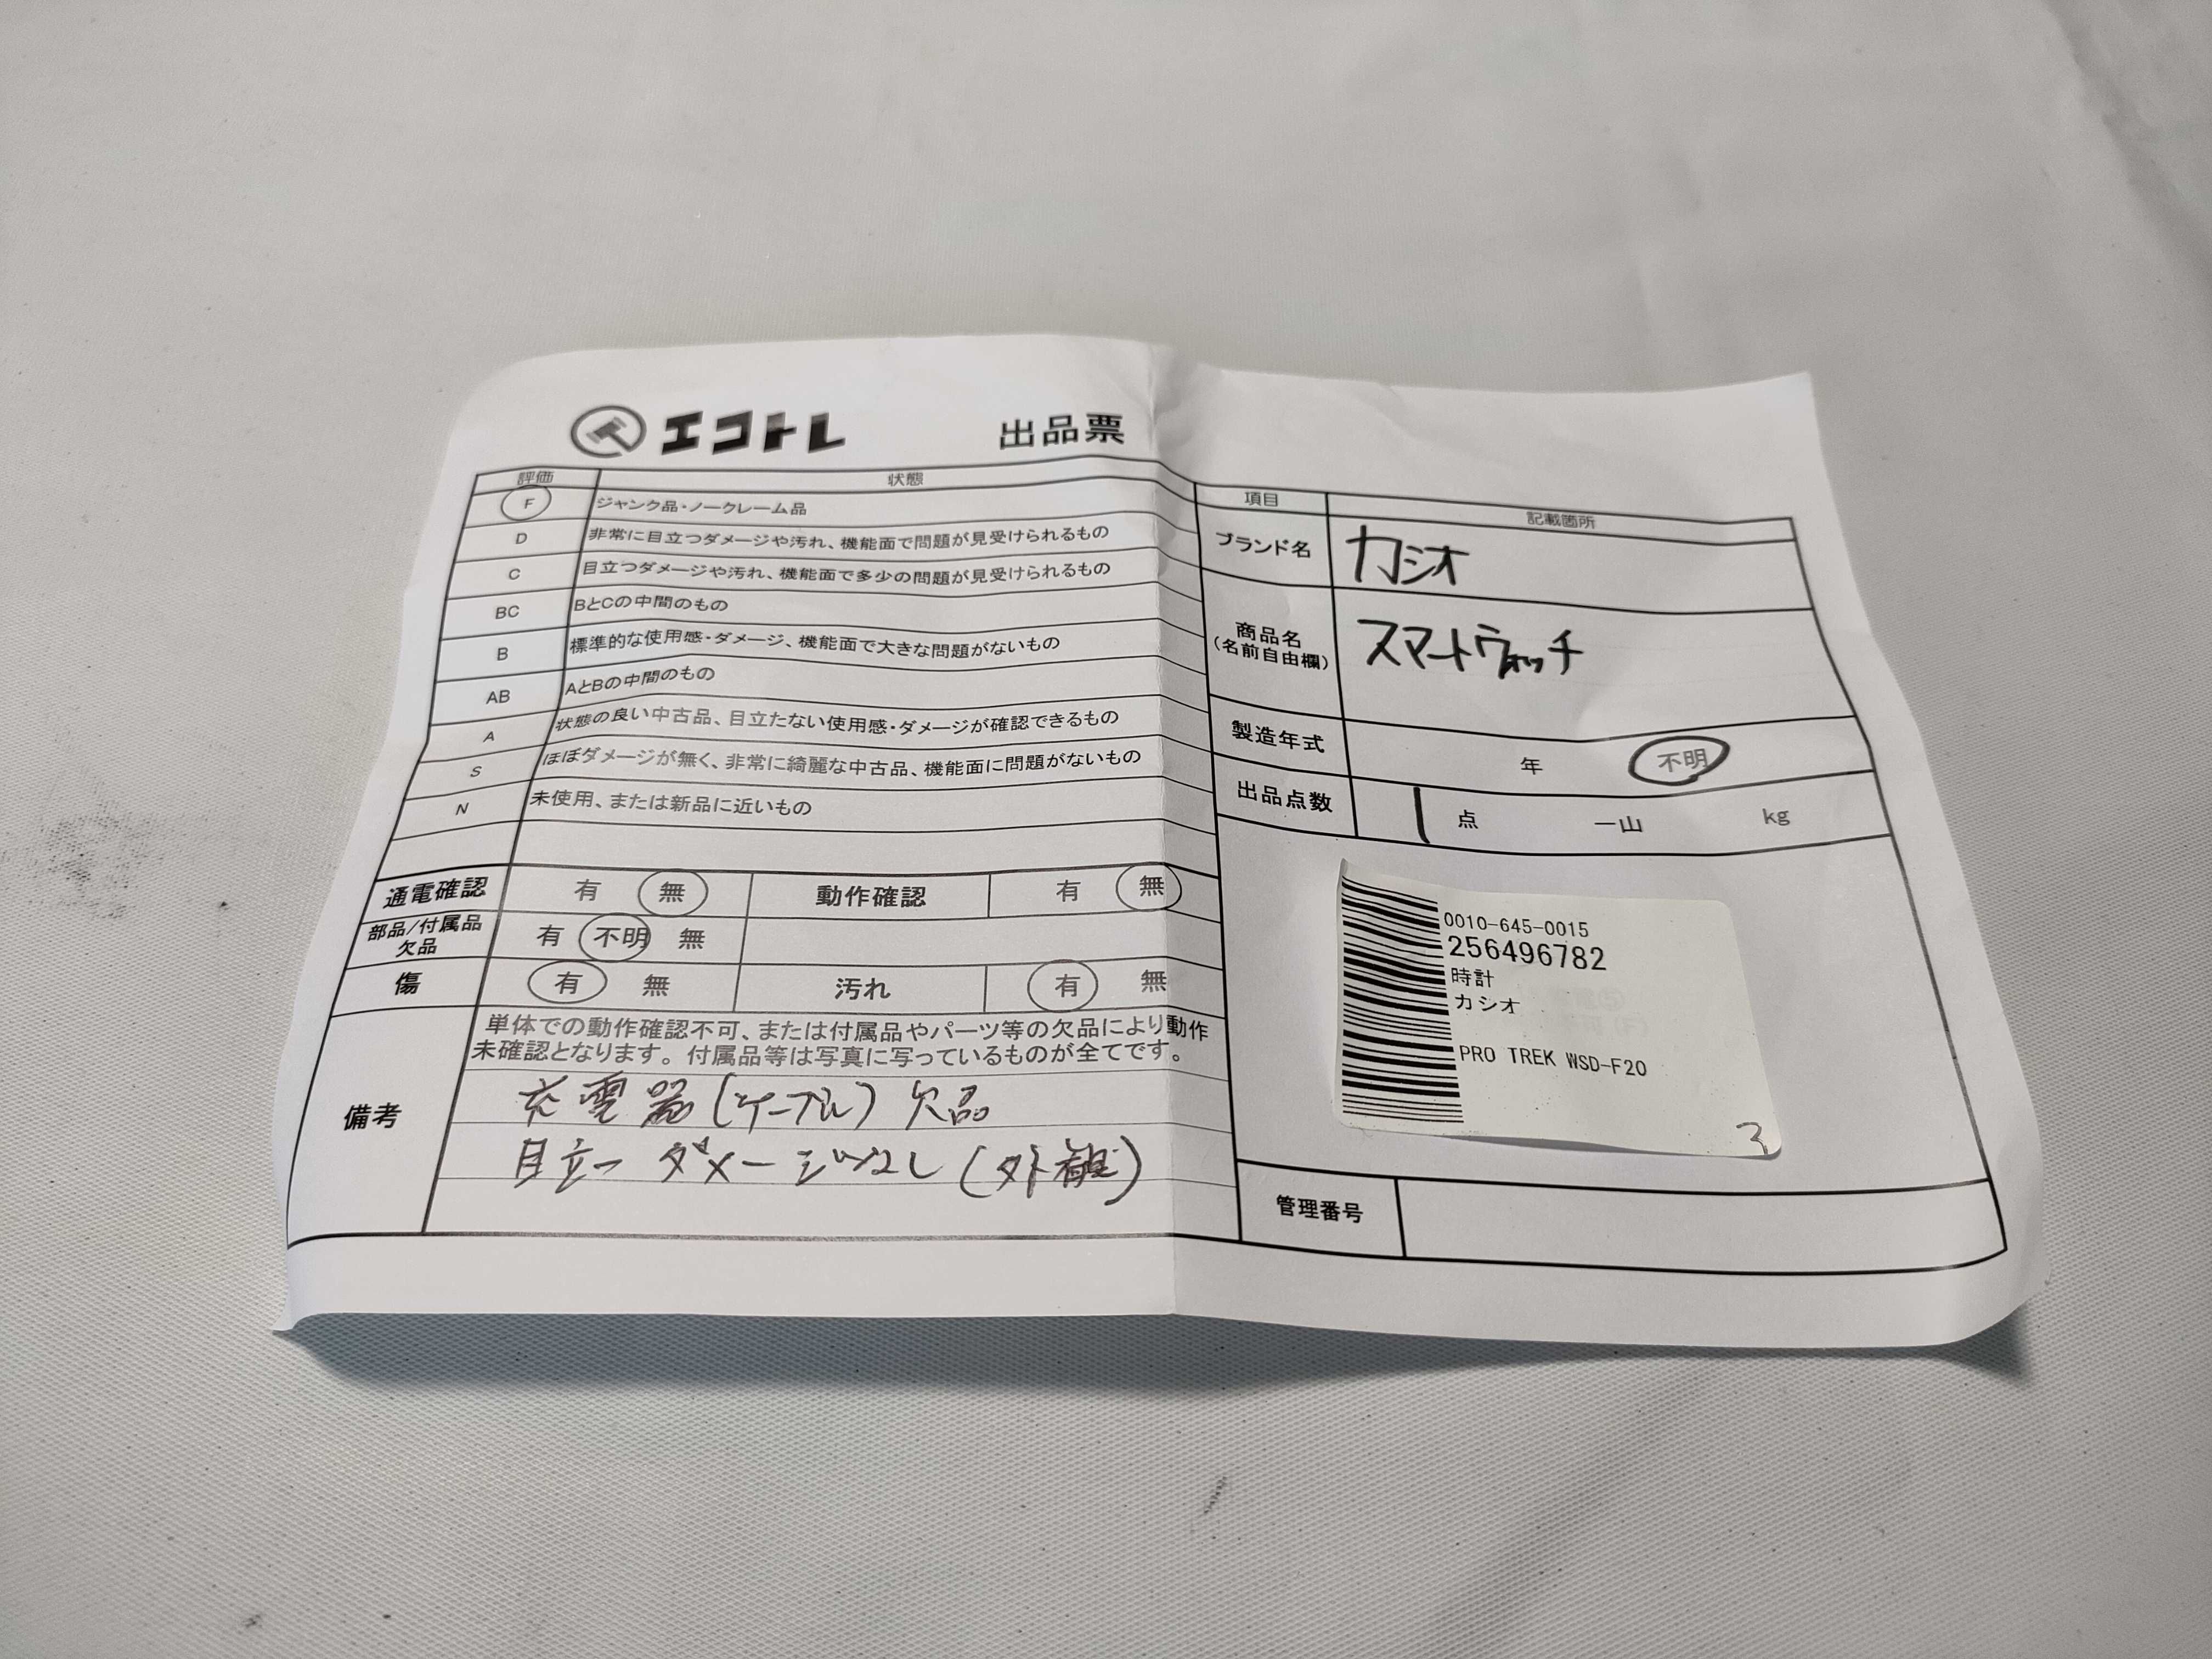 エコトレ 出品票
評価 状態
F ジャンク品・ノークレーム品
D 非常に目立つダメージや汚れ、機能面で問題が見受けられるもの
C 目立つダメージや汚れ、機能面で多少の問題が見受けられるもの
BC BとCの中間のもの
B 標準的な使用感・ダメージ、機能面で大きな問題がないもの
AB AとBの中間のもの
A 状態の良い中古品、目立たない使用感・ダメージが確認できるもの
S ほぼダメージが無く、非常に綺麗な中古品、機能面に問題がないもの
N 未使用、または新品に近いもの
通電確認 有 無 動作確認 有 無
部品/付属品 欠品 有 不明 無
傷 有 無 汚れ 有 無
備考
単体での動作確認不可、または付属品やパーツ等の欠品により動作
未確認となります。付属品等は写真に写っているものが全てです。
充電器(ケーブル)欠品
目立つダメージなし(外観)
項目 記載箇所
ブランド名 カシオ
商品名 スマートウォッチ
(名前自由欄)
製造年式 年 不明
出品点数 1 点 一山 kg
0010-645-0015
256496782
時計
カシオ
PRO TREK WSD-F20
3
管理番号